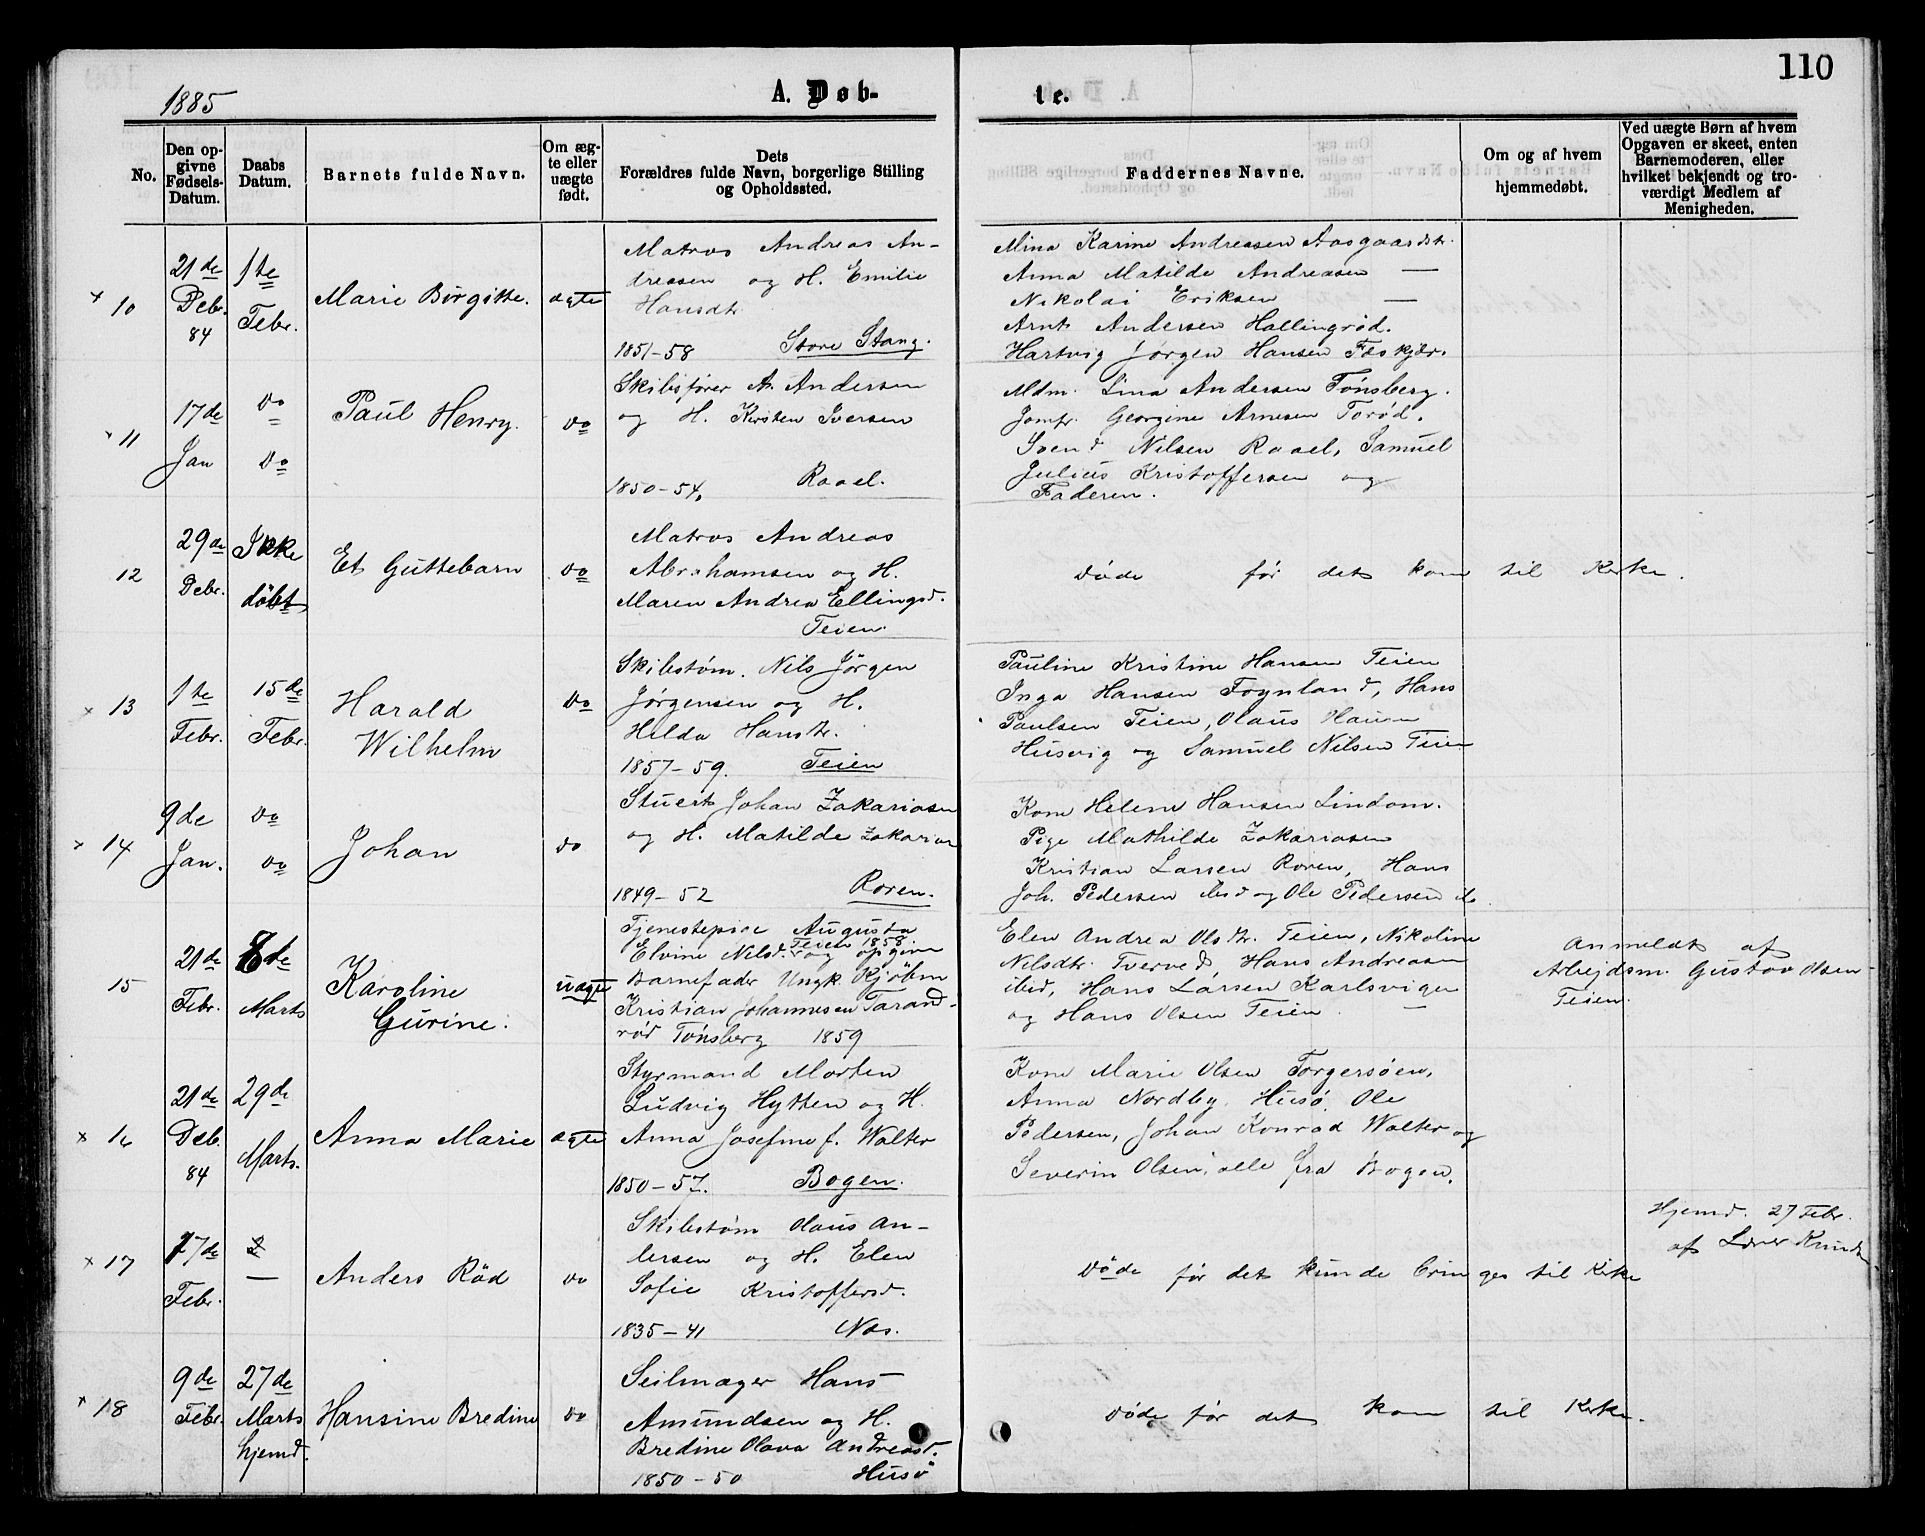 110
1885
A. Døb-
te.
No.
Den op-
givne
Fødsels-
Datum.
Daabs
Datum.
Barnets fulde Navn.
Om æg-
te eller
uægte
født.
Dets
Forældres fulde Navn, borgerlige Stilling
og Opholdssted.
Faddernes Navne.
Om og af hvem
hjemmedøbt.
Ved uægte Børn af hvem
Opgaven er skeet, enten
Barnemoderen, eller
hvilket bekjendt og tro-
værdigt Medlem af
Menigheden.
x 10
21de
Debr.
84
1te
Febr.
Marie Birgitte.
ægte
Matros Andreas An-
dreasen og H. Emilie
Hansdtr.
1851-58 Store Stang.
Mina Karine Andreasen Aasgaardstr.
Anna Matilde Andreasen —
Nikolai Eriksen —
Arnt Andersen Hallingrød.
Hartvig Jørgen Hansen Fæskjær.
x 11
17de
Jan
do
do
Paul Henry.
do
Skibsfører A. Andersen
og H. Kirsten Iversen
1850-54, Raael.
Mdm. Lina Andersen Tønsberg.
Jomfr. Georgine Arnesen Torød.
Svend Nilsen Raael, Samuel
Julius Kristoffersen og
Faderen.
12
29de
Debr.
Ikke
døbt
Et Guttebarn
do
Matros Andreas
Abrahamsen og H.
Maren Andrea Ellingsd.
Teien.
Døde før det kom til Kirke.
x 13
1te
Febr.
15de
Febr.
Harald
Wilhelm
do
Skibstøm. Nils Jørgen
Jørgensen og H.
Hilda Hansdtr.
1857-59. Teien
Pauline Kristine Hansen Teien
Inga Hansen Foynland, Hans
Paulsen Teien, Olaus Hansen
Husvig og Samuel Nilsen Teien
x 14
9de
Jan.
do
do
Johan
do
Stuert Johan Zakariasen
og H. Matilde Zakarias
1849-52 Roren.
Kone Helene Hansen Lindom.
Pige Mathilde Zakariasen
Kristian Larsen Roren, Hans
Joh. Pedersen ibid og Ole Pedersen do
15
21de
Febr.
8de
Marts
Karoline
Gurine.
uægte
Tjenestepige Augusta
Elvine Nilsd. Teien 1858. og opgiven
Barnefader Ungk. Kjøbm
Kristian Johannesen Tarand-
rød Tønsberg 1859
Elen Andrea Olsdtr. Teien, Nikoline
Nilsdtr. Tverved, Hans Andreasen
ibid, Hans Larsen Karlsvigen
og Hans Olsen Teien —
Anmeldt af
Arbejdsm. Gustav Olsen
Teien.
x 16
21de
Deb.
84
29de
Marts.
Anna Marie
ægte
Styrmand Morten
Ludvig Hytten og H.
Anna Josefine f. Walter
1850-57. Bogen.
Kone Marie Olsen Torgersøen,
Anna Nordby, Husø, Ole
Pedersen, Johan Konrad Walter og
Severin Olsen, alle fra Bogen.
x 17
17de
Febr.
—
Anders Rød
do
Skibstøm Olaus An-
dersen og H. Elen
Sofie Kristoffersd.
1835-41 Næs.
Døde før det kunde bringes til Kirke
Hjemd. 27 Febr.
af Lærer Knudsen
x 18
9de
Febr.
27de
Marts
hjemd.
Hansine Bredine
do
Seilmager Hans
Amundsen og H.
Bredine Olava Andreasd.
1850-50 Husø
Døde før det kom til Kirke.